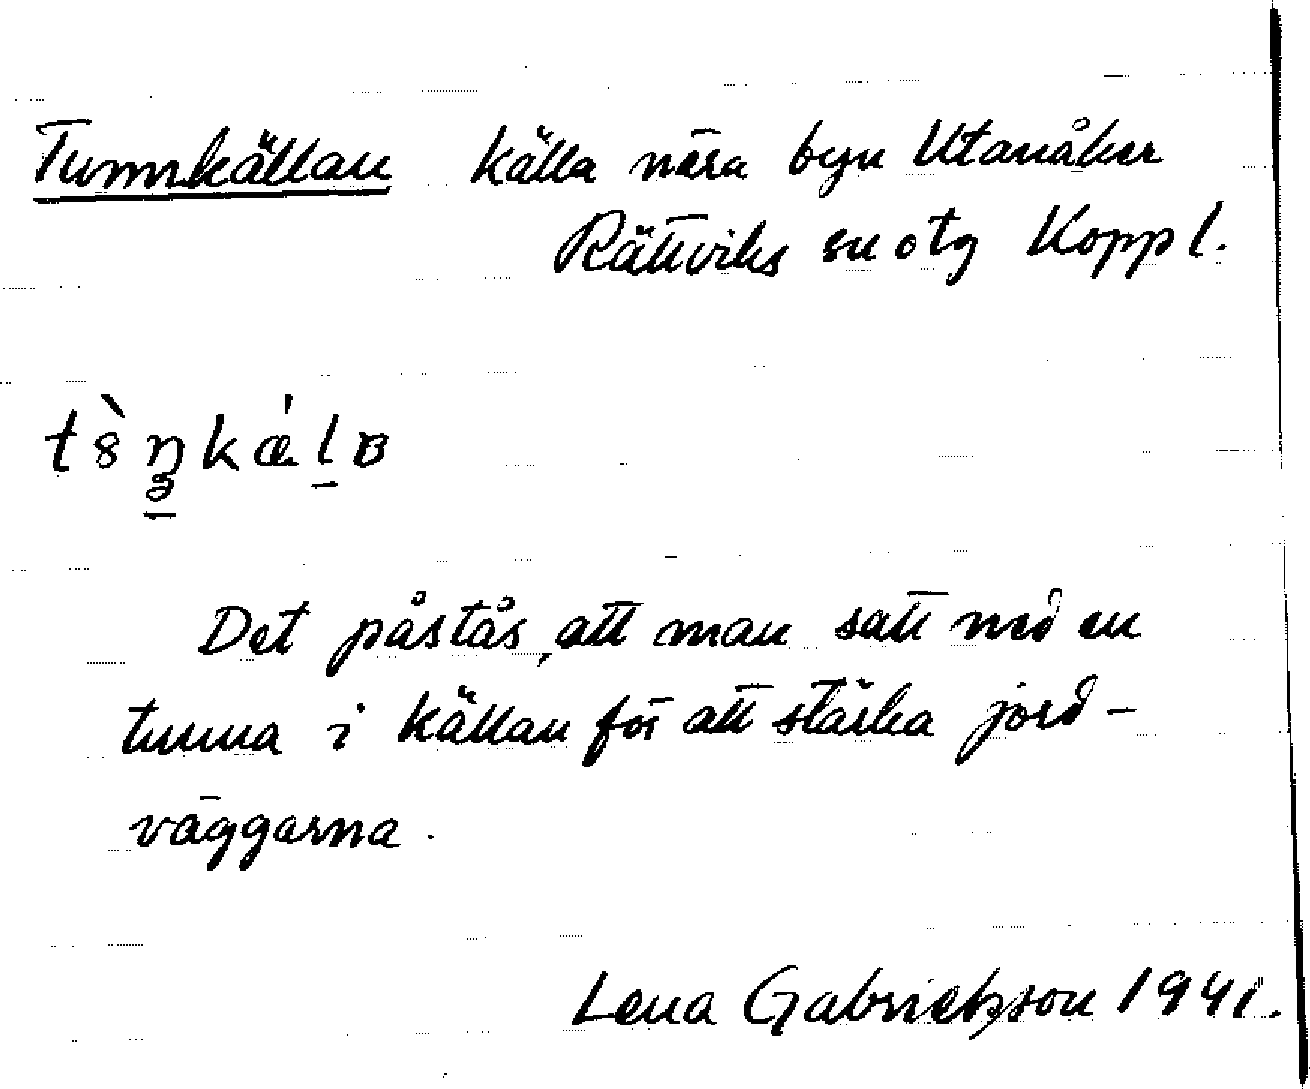 Tunnkällan källa nära byn Utanåker
Rättviks sn o tg Koppl.
Det påstås, att man satt ned en
tunna i källan för att stärka jord-
väggarna.
Lena Gabrielsson 1941.